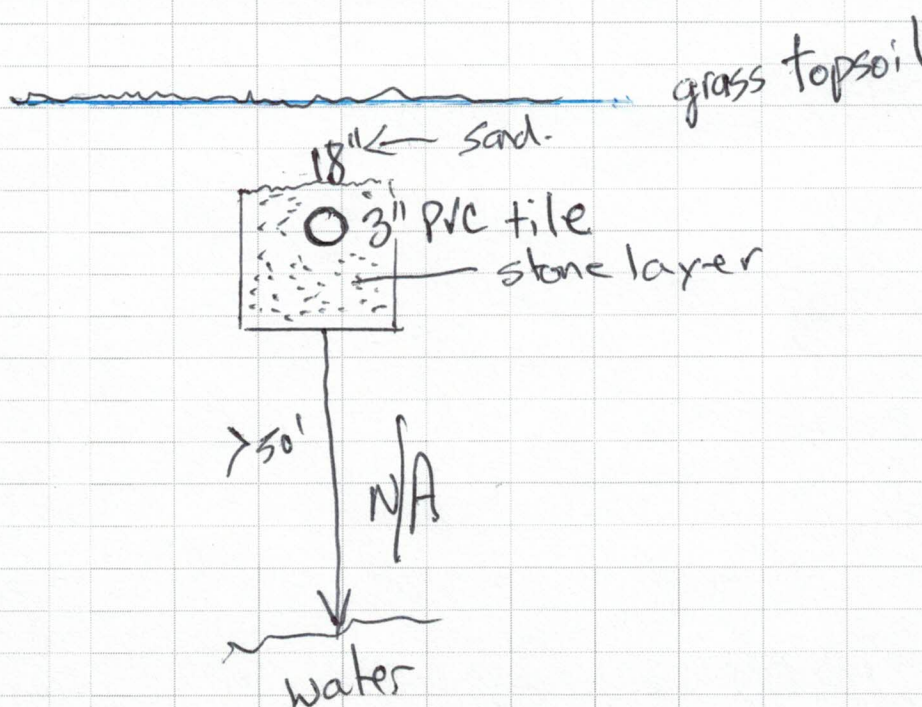 grass topsoil
18" sand.
3" PVC tile
stone layer
>50'
N/A
water